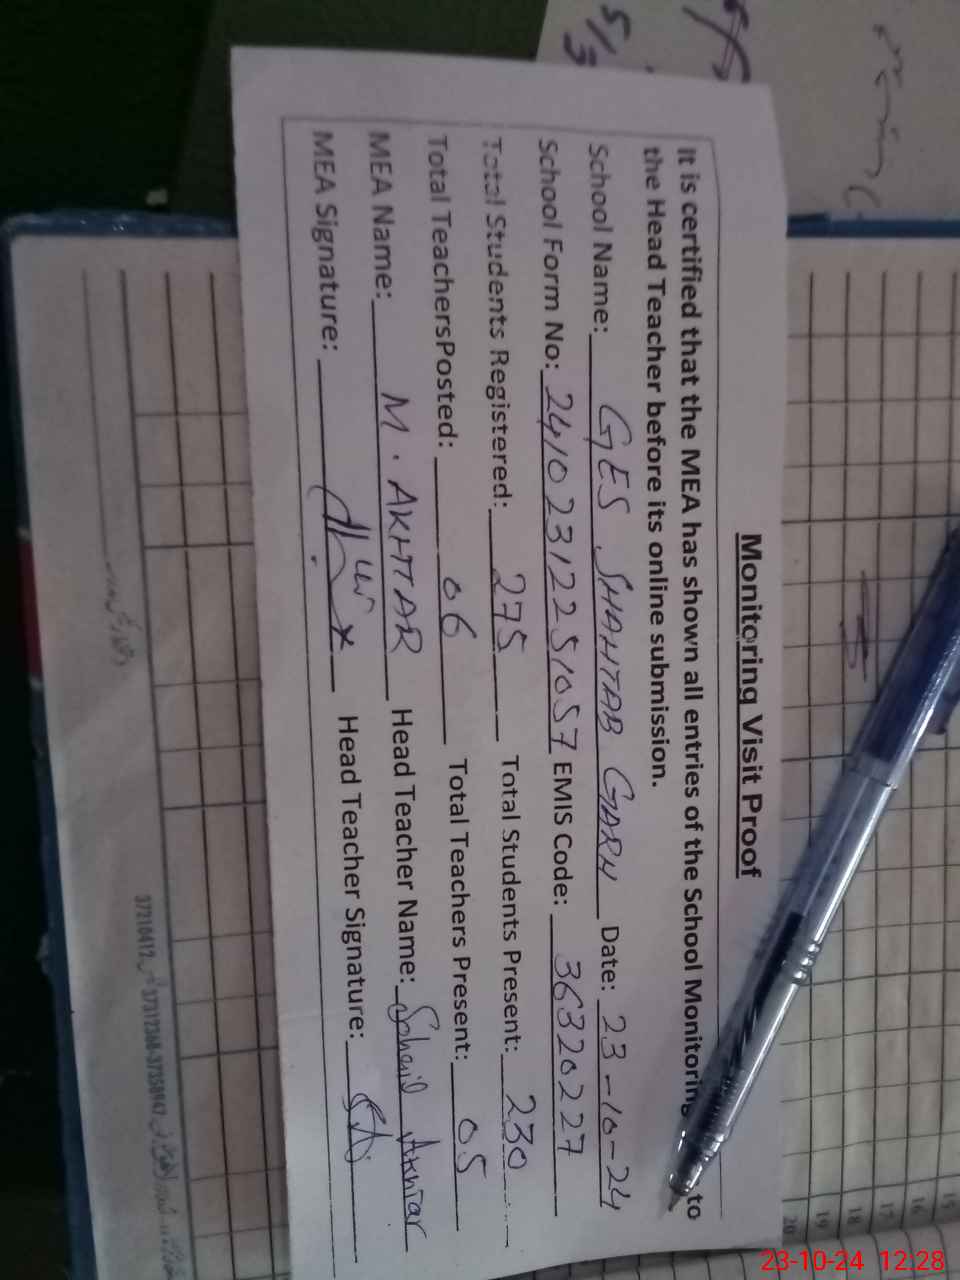 Monitoring Visit Proof
It is certified that the MEA has shown all entries of the School Monitoring to
the Head Teacher before its online submission.
School Name: GES SHAHTAB GARH Date: 23-10-24
School Form No: 24102312251057 EMIS Code: 36320227
Total Students Registered: 275 Total Students Present: 230
Total TeachersPosted: 06 Total Teachers Present: 05
MEA Name: M. AKHTAR Head Teacher Name: Sohail Akhtar
MEA Signature: Head Teacher Signature:
5/3
15
16
17
18
19
20
37210412
37312368-37358947
23-10-24 12:28